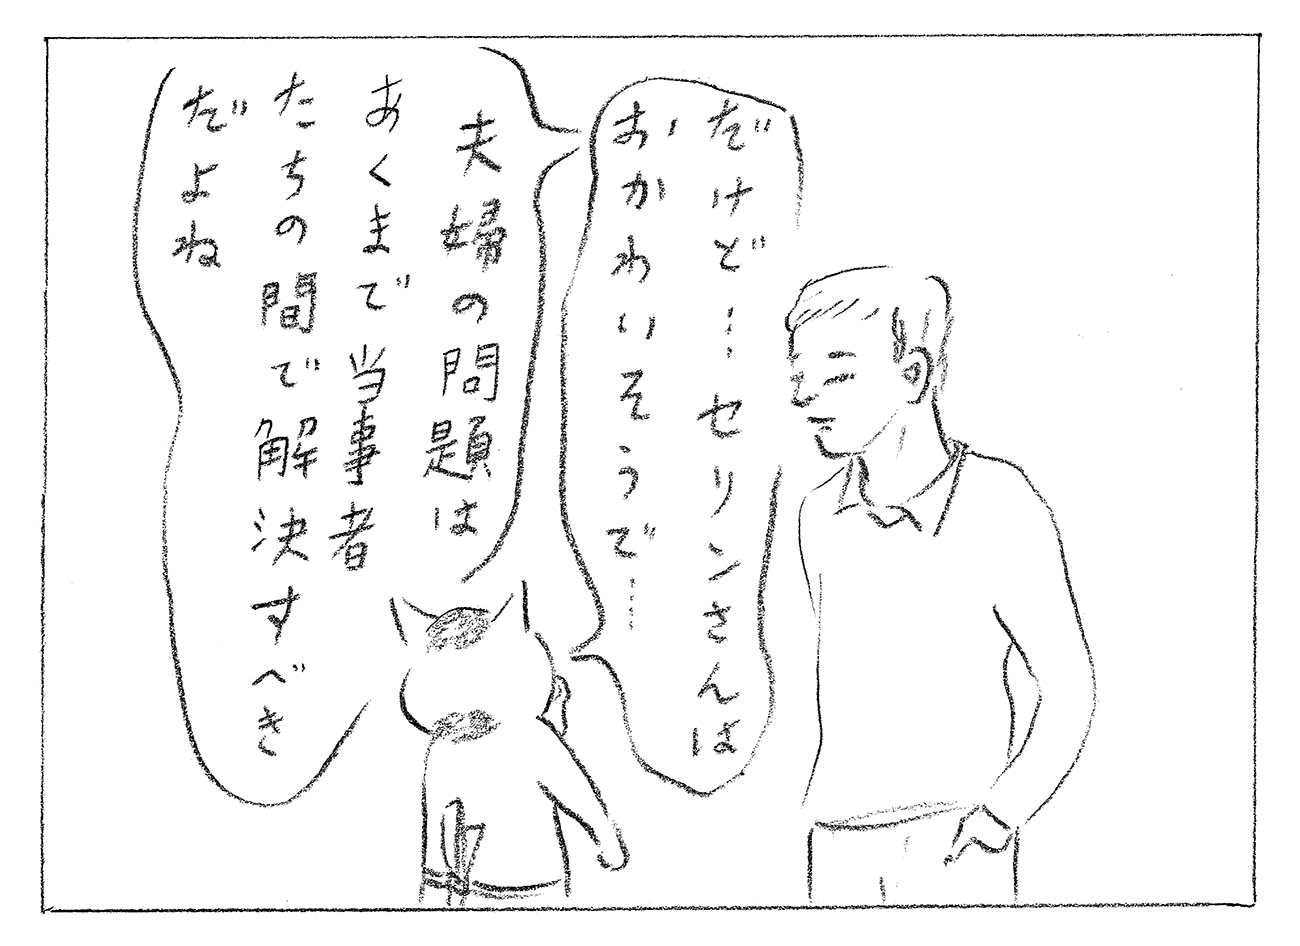 だけど…セリンさんは
おかわいそうで……
夫婦の問題は
あくまで当事者
たちの間で解決すべき
だよね